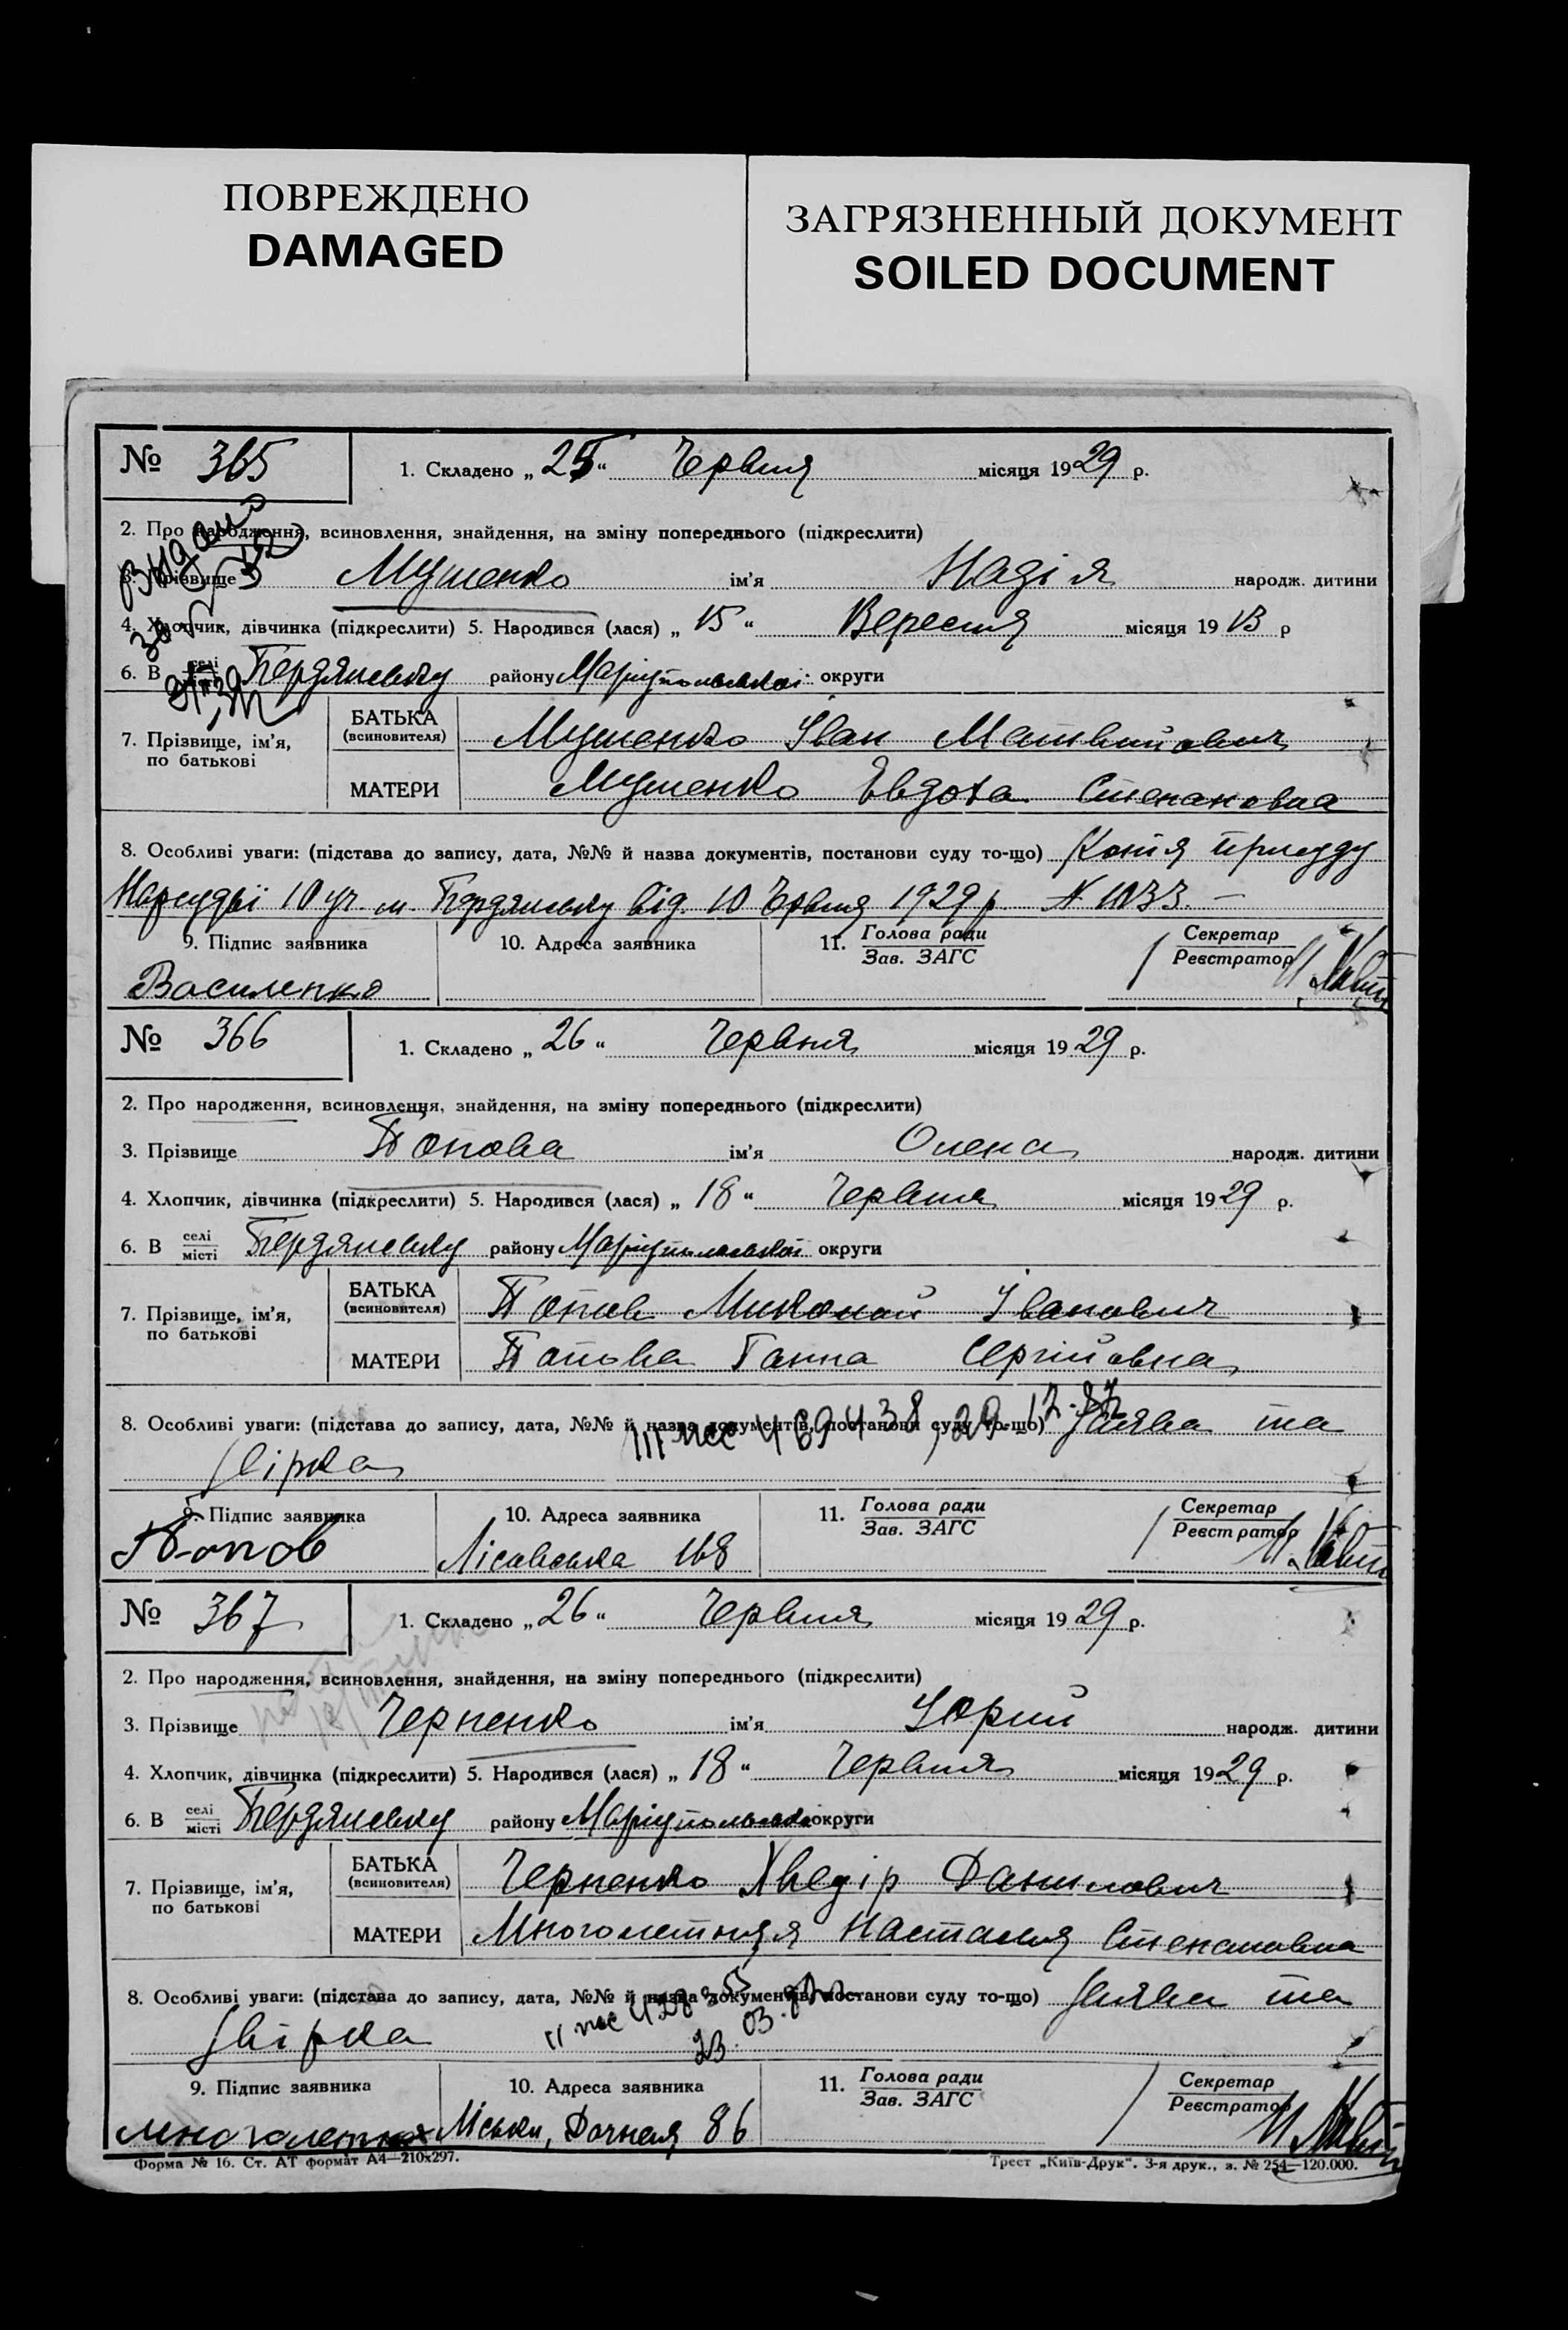 ПОВРЕЖДЕНО
DAMAGED
ЗАГРЯЗНЕННЫЙ ДОКУМЕНТ
SOILED DOCUMENT
№ 365
1. Складено „ 25 “ Червня місяця 1929 р.
2. Про народження, всиновлення, знайдення, на зміну попереднього (підкреслити)
3. Прізвище Мушенко ім’я Надія народж. дитини
4. Хлопчик, дівчинка (підкреслити) 5. Народився (лася) „ 15 “ Вересня місяця 19 13 р
6. В селі місті Бердянську району Маріупольської округи
7. Прізвище, ім’я, по батькові
БАТЬКА (всиновителя) Мушенко Іван Матвийович
МАТЕРИ Мушенко Евдоха Степановна
8. Особливі уваги: (підстава до запису, дата, №№ й назва документів, постанови суду то-що) Копія присуду
Нарсудьї 10 уч. м. Бердянську від 10 Червня 1929 р. № 1033. –
9. Підпис заявника
10. Адреса заявника
11. Голова ради Зав. ЗАГС
Секретар Реєстратор
Василенко
№ 366
1. Складено „ 26 “ Червня місяця 1929 р.
2. Про народження, всиновлення, знайдення, на зміну попереднього (підкреслити)
3. Прізвище Попова ім’я Олена народж. дитини
4. Хлопчик, дівчинка (підкреслити) 5. Народився (лася) „ 18 “ Червня місяця 1929 р.
6. В селі місті Бердянську району Маріупольської округи
7. Прізвище, ім’я, по батькові
БАТЬКА (всиновителя) Попов Миколай Іванович
МАТЕРИ Попова Ганна Сергійовна
8. Особливі уваги: (підстава до запису, дата, №№ й назва документів, постанови суду то-що) Заява та
Звірка
9. Підпис заявника
10. Адреса заявника
11. Голова ради Зав. ЗАГС
Секретар Реєстратор
Попов
Лісавська 168
№ 367
1. Складено „ 26 “ Червня місяця 1929 р.
2. Про народження, всиновлення, знайдення, на зміну попереднього (підкреслити)
3. Прізвище Черненко ім’я Юрий народж. дитини
4. Хлопчик, дівчинка (підкреслити) 5. Народився (лася) „ 18 “ Червня місяця 1929 р.
6. В селі місті Бердянську району Маріупольської округи
7. Прізвище, ім’я, по батькові
БАТЬКА (всиновителя) Черненко Хведір Данилович
МАТЕРИ Многолетняя Наталья Степановна
8. Особливі уваги: (підстава до запису, дата, №№ й назва документів, постанови суду то-що) Заява та
Звірка
9. Підпис заявника
10. Адреса заявника
11. Голова ради Зав. ЗАГС
Секретар Реєстратор
Многолетняя
Міськи, Дачная 86
Форма № 16. Ст. АТ формат А4—210х297.
Трест „Київ-Друк“. 3-я друк., з. № 254—120.000.